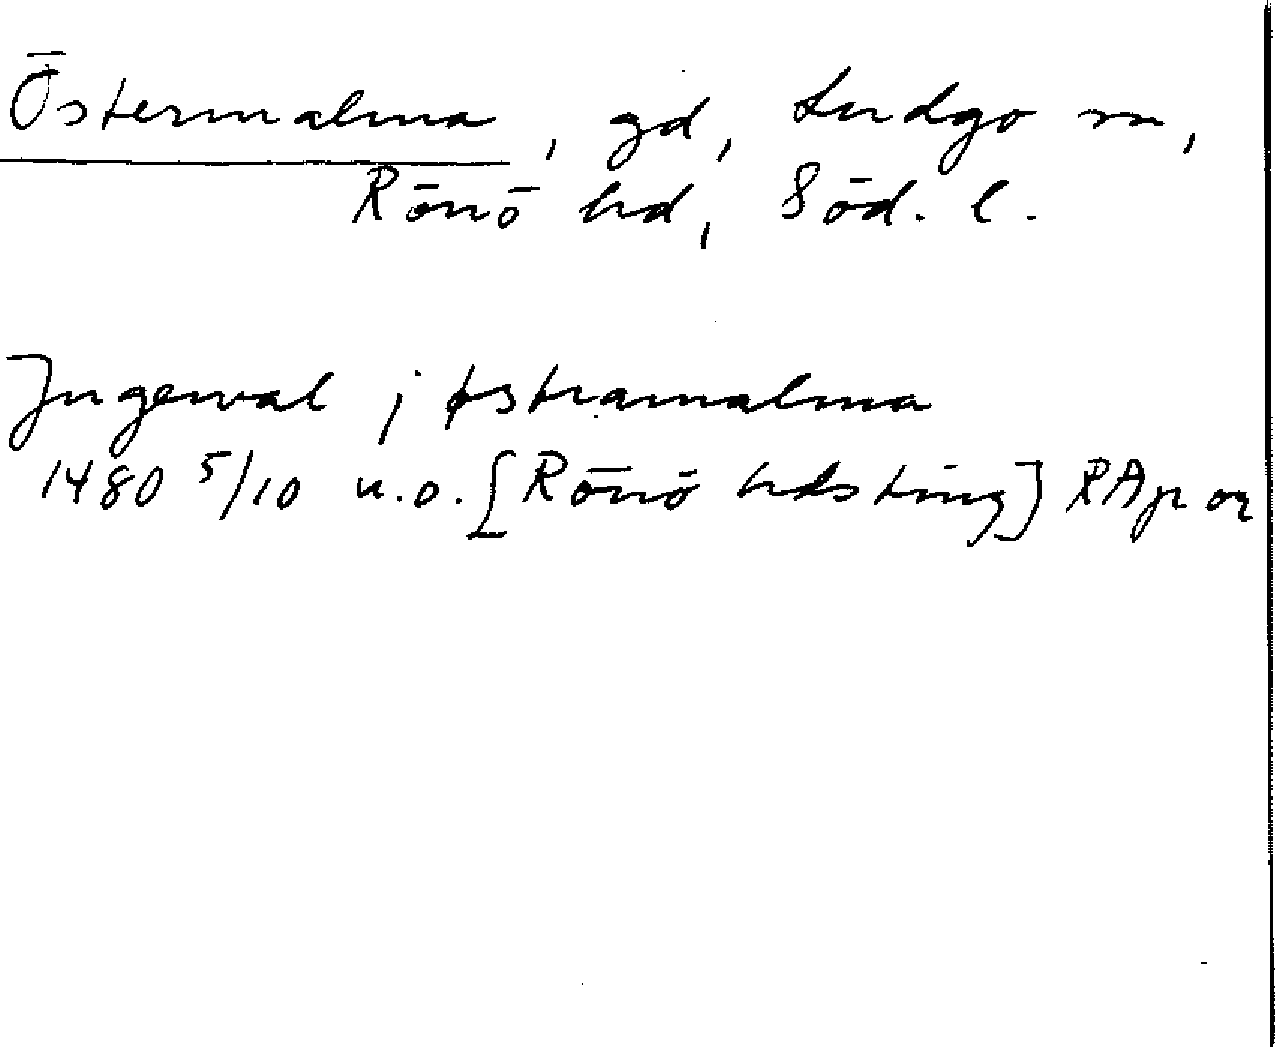 Östermalma, gd, Ludgo sn,
Rönö hd, Söd. l.
Ingewal j østramalma
1480 5/10 u.o. [Rönö hds ting] RAp or